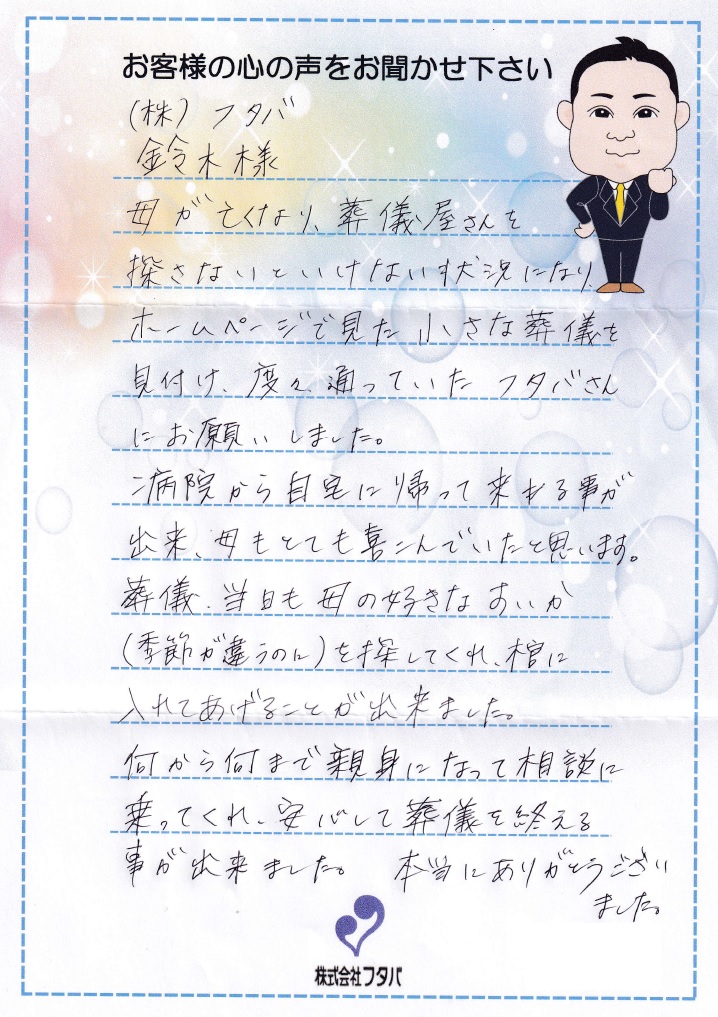 お客様の心の声をお聞かせ下さい
(株) フタバ
鈴木様
母が亡くなり、葬儀屋さんを
探さないといけない状況になり
ホームページで見た小さな葬儀を
見付け、度々通っていたフタバさん
にお願いしました。
病院から自宅に帰って来れる事が
出来、母もとても喜こんでいたと思います。
葬儀、当日も母の好きなすいか
(季節が違うのに)を探してくれ、棺に
入れてあげることが出来ました。
何から何まで親身になって相談に
乗ってくれ、安心して葬儀を終える
事が出来ました。 本当にありがとうござい
ました。
株式会社フタバ